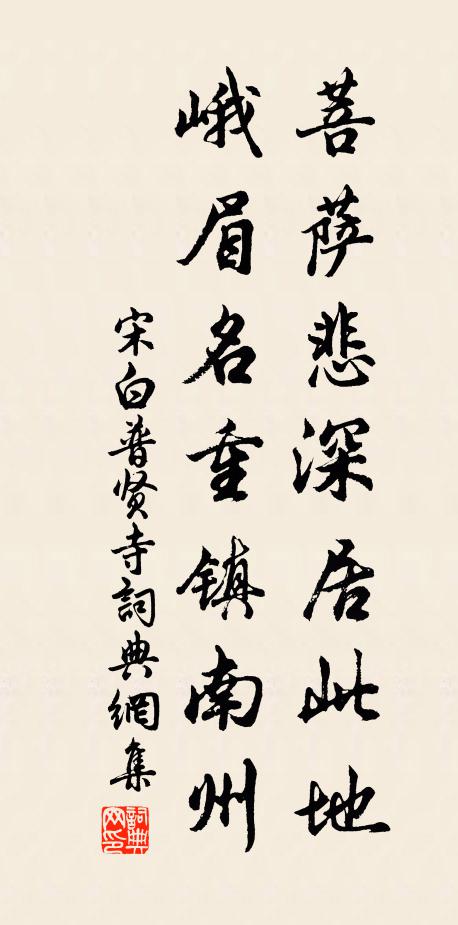 菩萨悲深居此地
峨眉名重镇南州
宋白普贤寺詞典網集
詞典网印